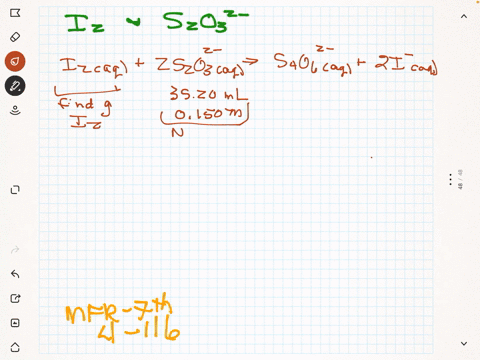 I₂ ~ S₂O₃²⁻
I₂(aq) + 2S₂O₃²⁻(aq) → S₄O₆²⁻(aq) + 2I⁻(aq)
find g
I₂
35.20 mL
0.150 m
N
MFR-7th
4-116